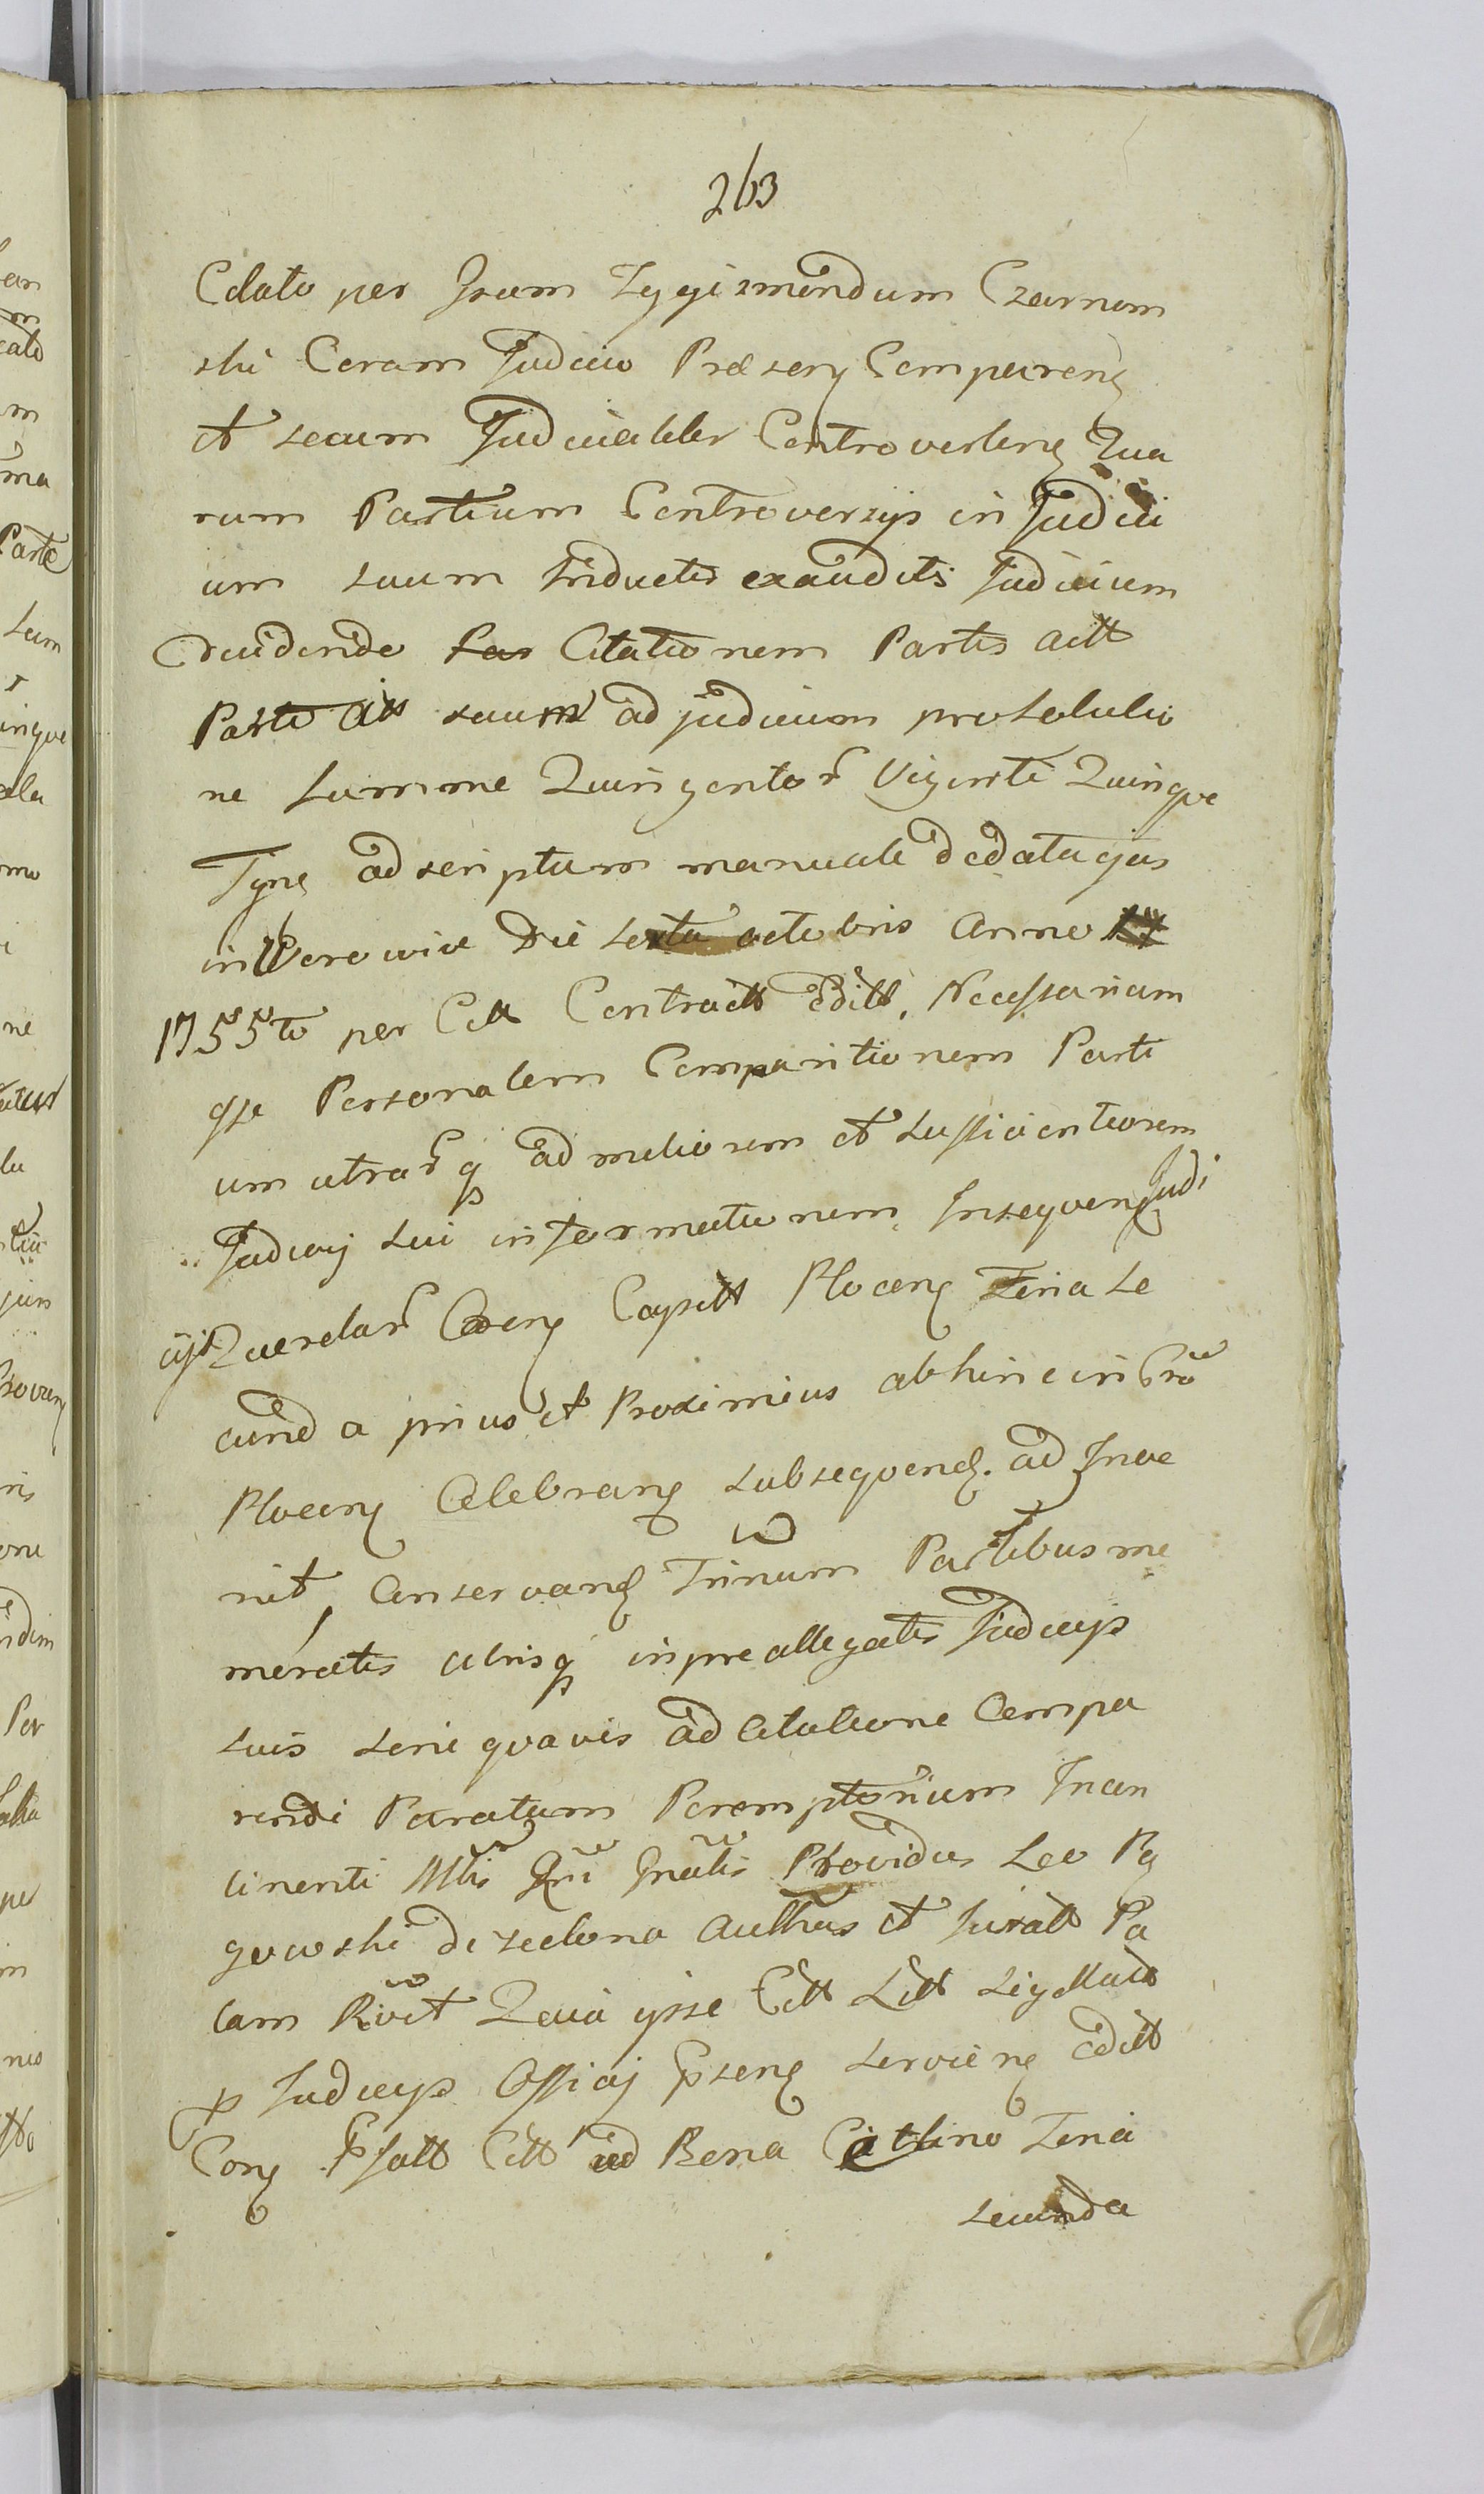 263
Citato per Gsum Zygismondum Czarnom
ski Coram Judicio Præseng Compareng
et secum Judicialiter Controverteng Qua
rum Partium Controversijs in Judici
um suum Inductis exauditis Judicium
Decidendo Citationem Partis actt
Parte Citt suum ad judicium pro solutio
ne summe Quingentor Viginti Quinque
Tynf ad scriptum manuale d datagas
in Die sexta octobris Anno
1755to per Citt Contractt editt, Necessariam
qsse Personalem Comparitionem Parti
um utrarq ad meliorem et sufficientiorem
Judicij sui informationem, Insequeng Judi
cijs Querelar Caseng Capitt Ploceng Feria se
cunda prius et Proximius abhinc in Cro
Ploceng Celebrang subsequend. ad Inve
nit, Conservand Trinum Partibus me
moratis utrisq in preallegatis Judicijs
suis sine quavis ad Citatione Compa
rendi Paratum Peremptorium Incon
tinenti Mtis Gnlis Providus Leo Ro
gowski de zielona Authus et Juratt Pa
lam Rcvit Quia ipse Citt Litt sigillatt
p Judicijs Officij Pseng servieng editt
Cong Psatt Citt ad Bona Feria
secunda